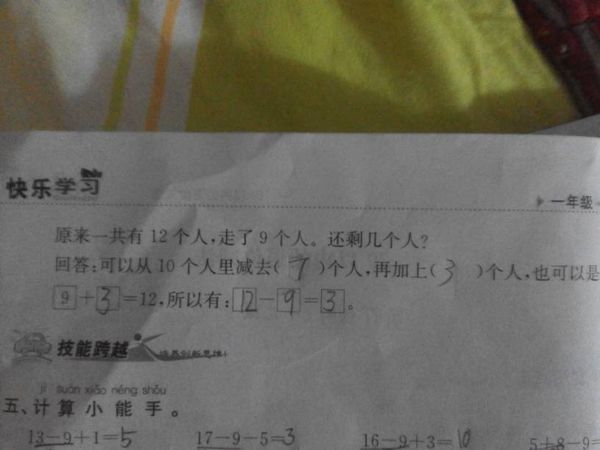 快乐学习
一年级
原来一共有 12 个人，走了 9 个人。还剩几个人？
回答：可以从 10 个人里减去（ 7 ）个人，再加上（ 3 ）个人，也可以是
9 + 3 = 12，所以有： 12 - 9 = 3 。
技能跨越 培养创新思维
jì suàn xiǎo néng shǒu
五、计算小能手。
13-9+1=5 17-9-5=3 16-9+3=10 5+8-9=